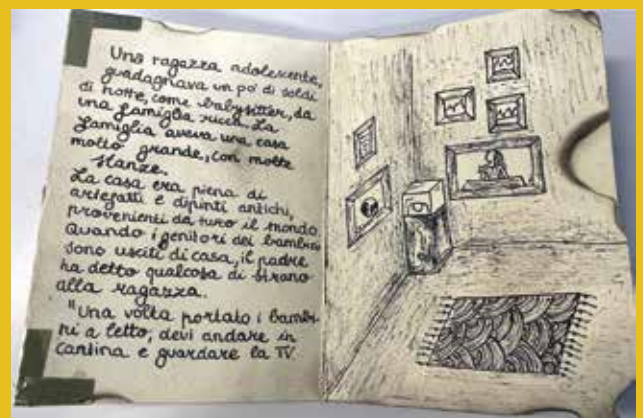 Una ragazza adolescente,
guadagnava un po' di soldi
di notte, come babysitter, da
una famiglia ricca. La
famiglia aveva una casa
molto grande, con molte
stanze.
La casa era piena di
artefatti e dipinti antichi,
provenienti da tuto il mondo.
Quando i genitori dei bambini
sono usciti di casa, il padre
ha detto qualcosa di strano
alla ragazza.
"Una volta portato i bambi-
ni a letto, devi andare in
cantina e guardare la TV